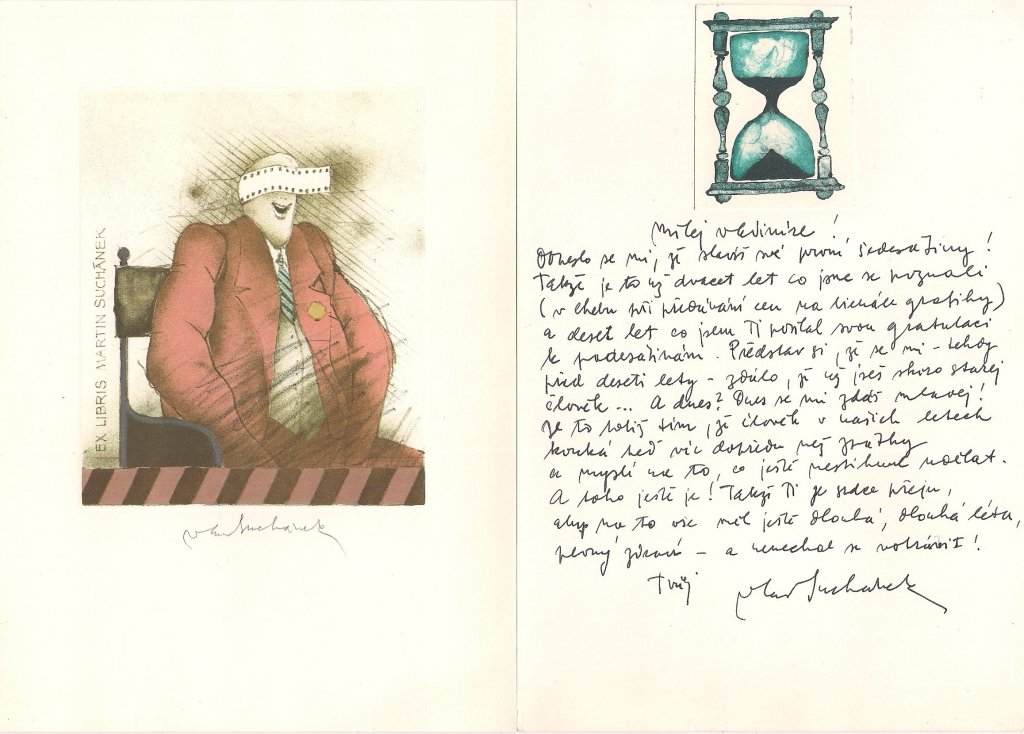 EX LIBRIS MARTIN SUCHÁNEK
Milej Vladimíre!
Doneslo se mi, žě slavíš své první šedesátiny!
Takžě je to už dvacet let co jsme se poznali
(v Chebu při předávání cen na bienále grafiky)
a deset let co jsem Ti posílal svou gratulaci
k padesátinám. Představ si, žě se mi – tehdy
před deseti lety – zdálo, žě už jseš skoro starej
člověk ... A dnes? Dnes se mi zdáš mladej!
Je to totiž tím, žě člověk v našich letech
kouká teď víc dopředu než zpátky
a myslí na to, co ještě nestihnul udělat.
A toho ještě je! Takžě Ti ze srdce přeju,
abys na to vše měl ještě dlouhá, dlouhá léta,
pevný zdraví – a nenechal se votrávit!
Tvůj